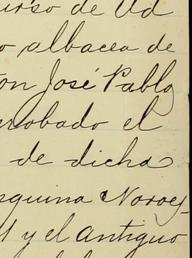 urso de Ud
o albacea de
on José Pablo
robado el
de dicha
squina Noroes
y el antiguo